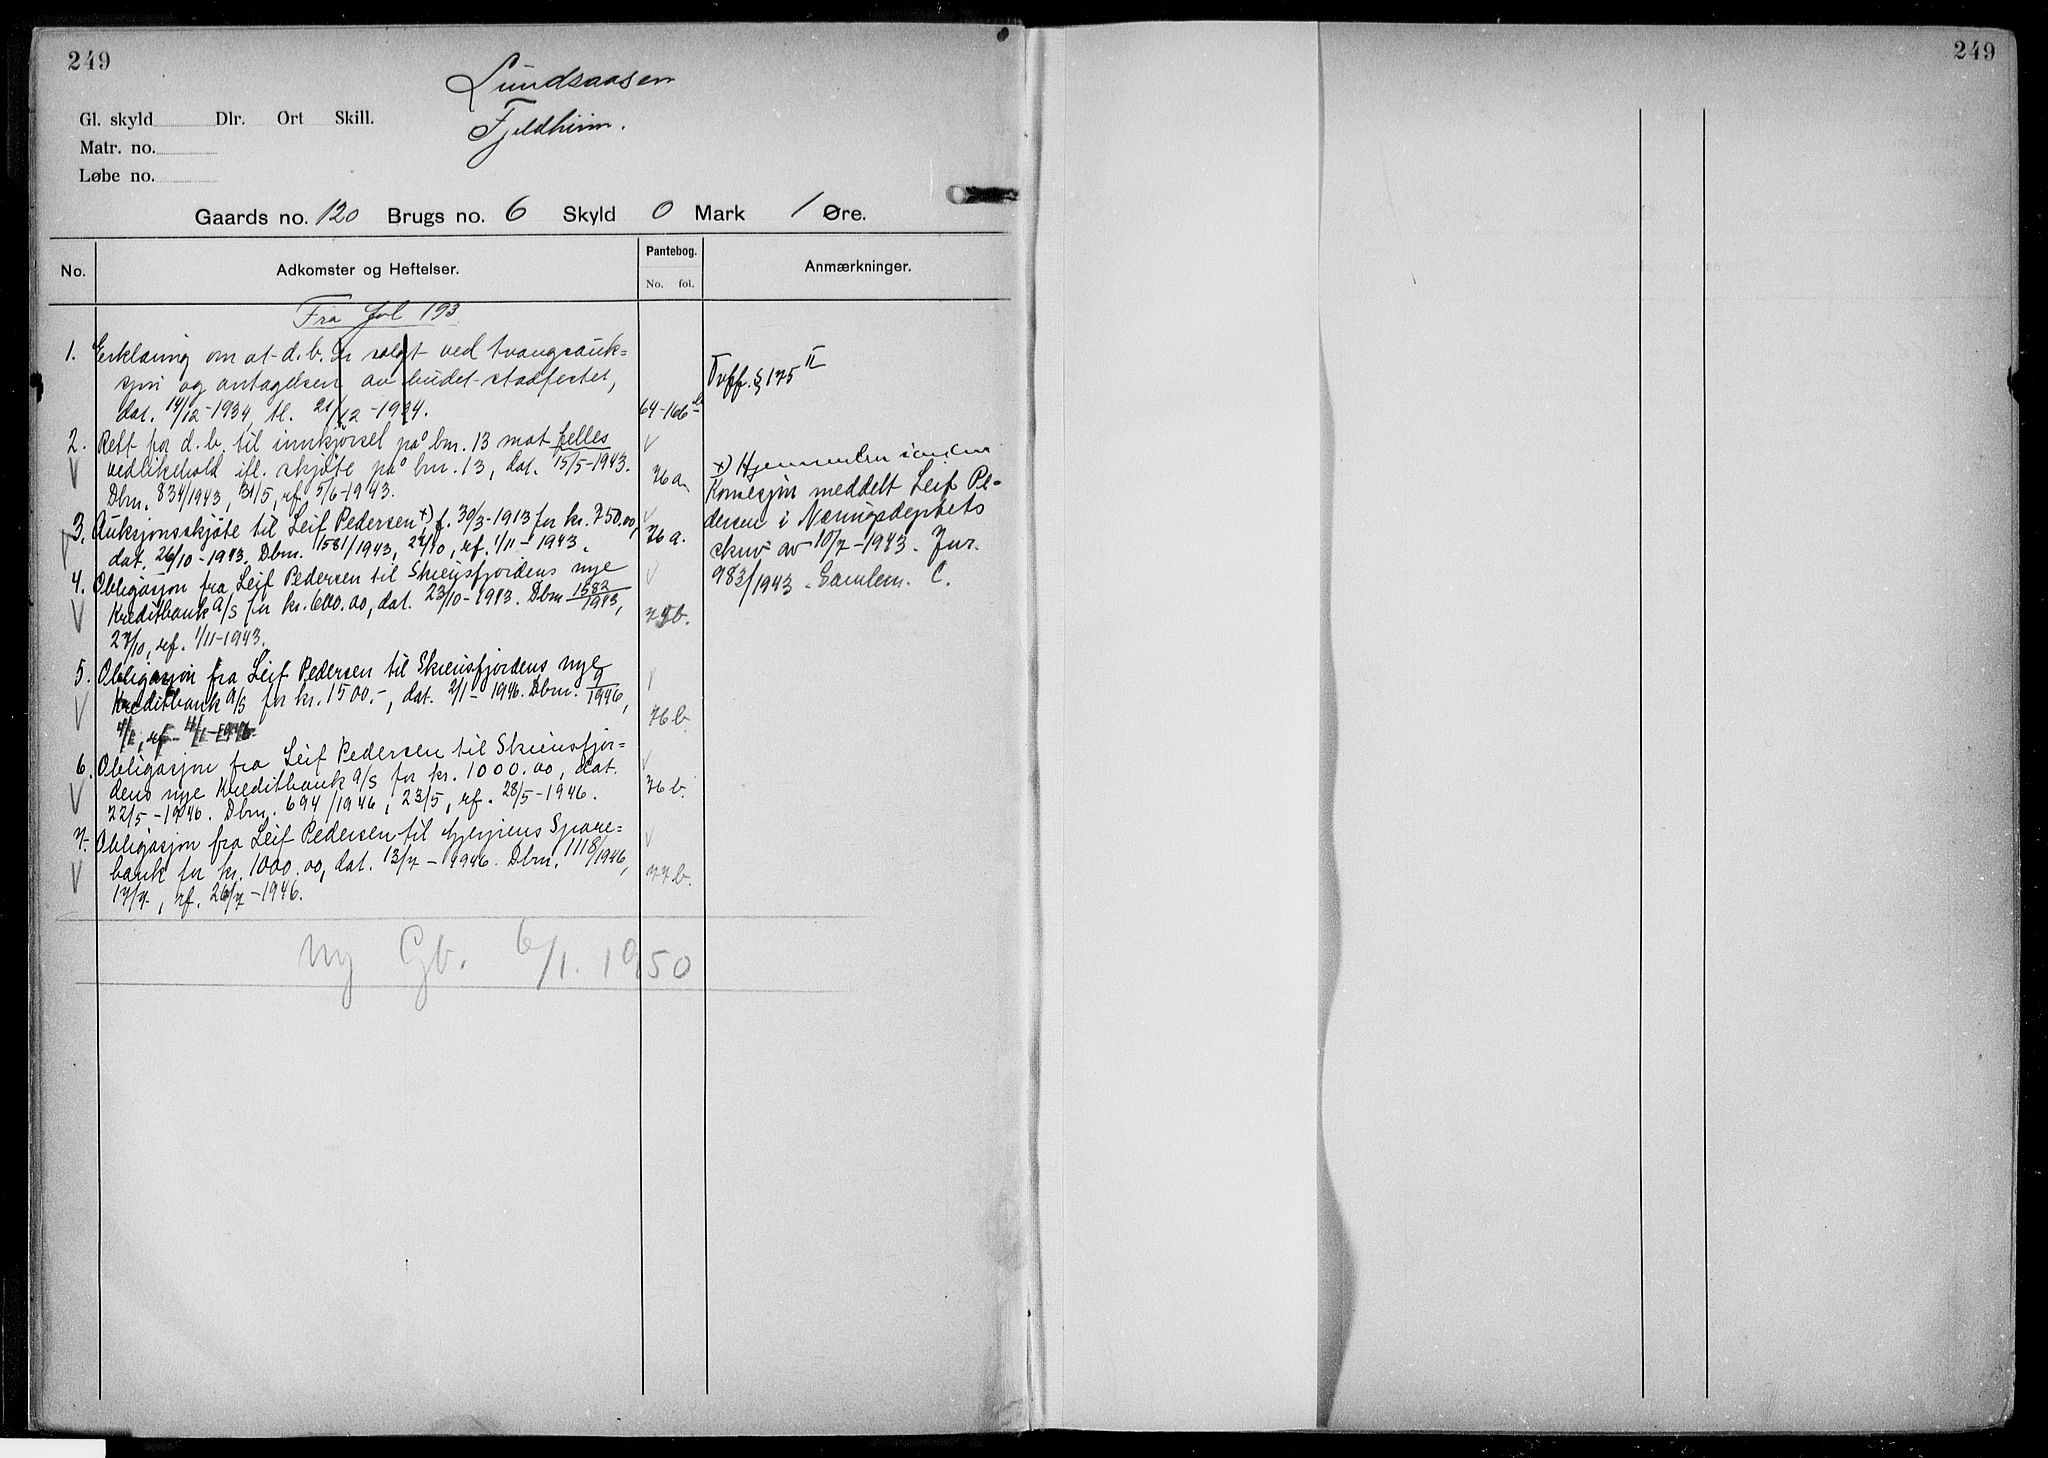 249
249
Lundsaasen
Fjeldheim.
Gl. skyld Dlr. Ort Skill.
Matr. no.
Løbe no.
Gaards no. 120 Brugs no. 6 Skyld 0 Mark 1 Øre.
No. Adkomster og Heftelser. Pantebog. No. fol. Anmærkninger.
Fra fol 193
1. Erklæring om at d. b. er solgt ved tvangsauk=
sjon og antagelsen av budet stadfestet,
dat. 14/12-1934, tl. 21/12-1934. 64-166b
§ 175 II
2. Rett for d. b. til innkjørsel på bnr. 13 mot felles
vedlikehold ifl. skjøte på bnr. 13, dat. 15/5-1943.
Dbnr. 834/1943, 31/5, rf. 5/6-1943. 76a
3. Auksjonsskjøte til Leif Pedersen x), f. 30/3-1913 for kr. 750.00,
dat. 26/10-1943. Dbnr. 1581/1943, 27/10, rf. 1/11-1943. 76a.
x) Hjemmelen
Konsesjon meddelt Leif Pe-
dersen i Næringsdeptets
skriv av 10/7-1943. Jnr.
983/1943. Samlem. C.
4. Obligasjon fra Leif Pedersen til Skiensfjordens nye
Kreditbank A/S for kr. 600.00, dat. 23/10-1943. Dbnr 1582/1943,
27/10, rf. 1/11-1943. 75b.
5. Obligasjon fra Leif Pedersen til Skiensfjordens nye
Kreditbank A/S for kr. 1500.-, dat. 2/1-1946. Dbnr. 9/1946,
4/1, rf. 11/1-1946. 76b
6. Obligasjon fra Leif Pedersen til Skiensfjor=
dens nye Kreditbank A/S for kr. 1000.00, dat.
22/5-1946. Dbnr. 694/1946, 23/5, rf. 28/5-1946. 76b.
7. Obligasjon fra Leif Pedersen til Gjerpens Spare=
bank for kr. 1000.00, dat. 13/7-1946. Dbnr. 1118/1946,
17/7, rf. 26/7-1946. 77b.
Ny Gb. 6/1. 1950